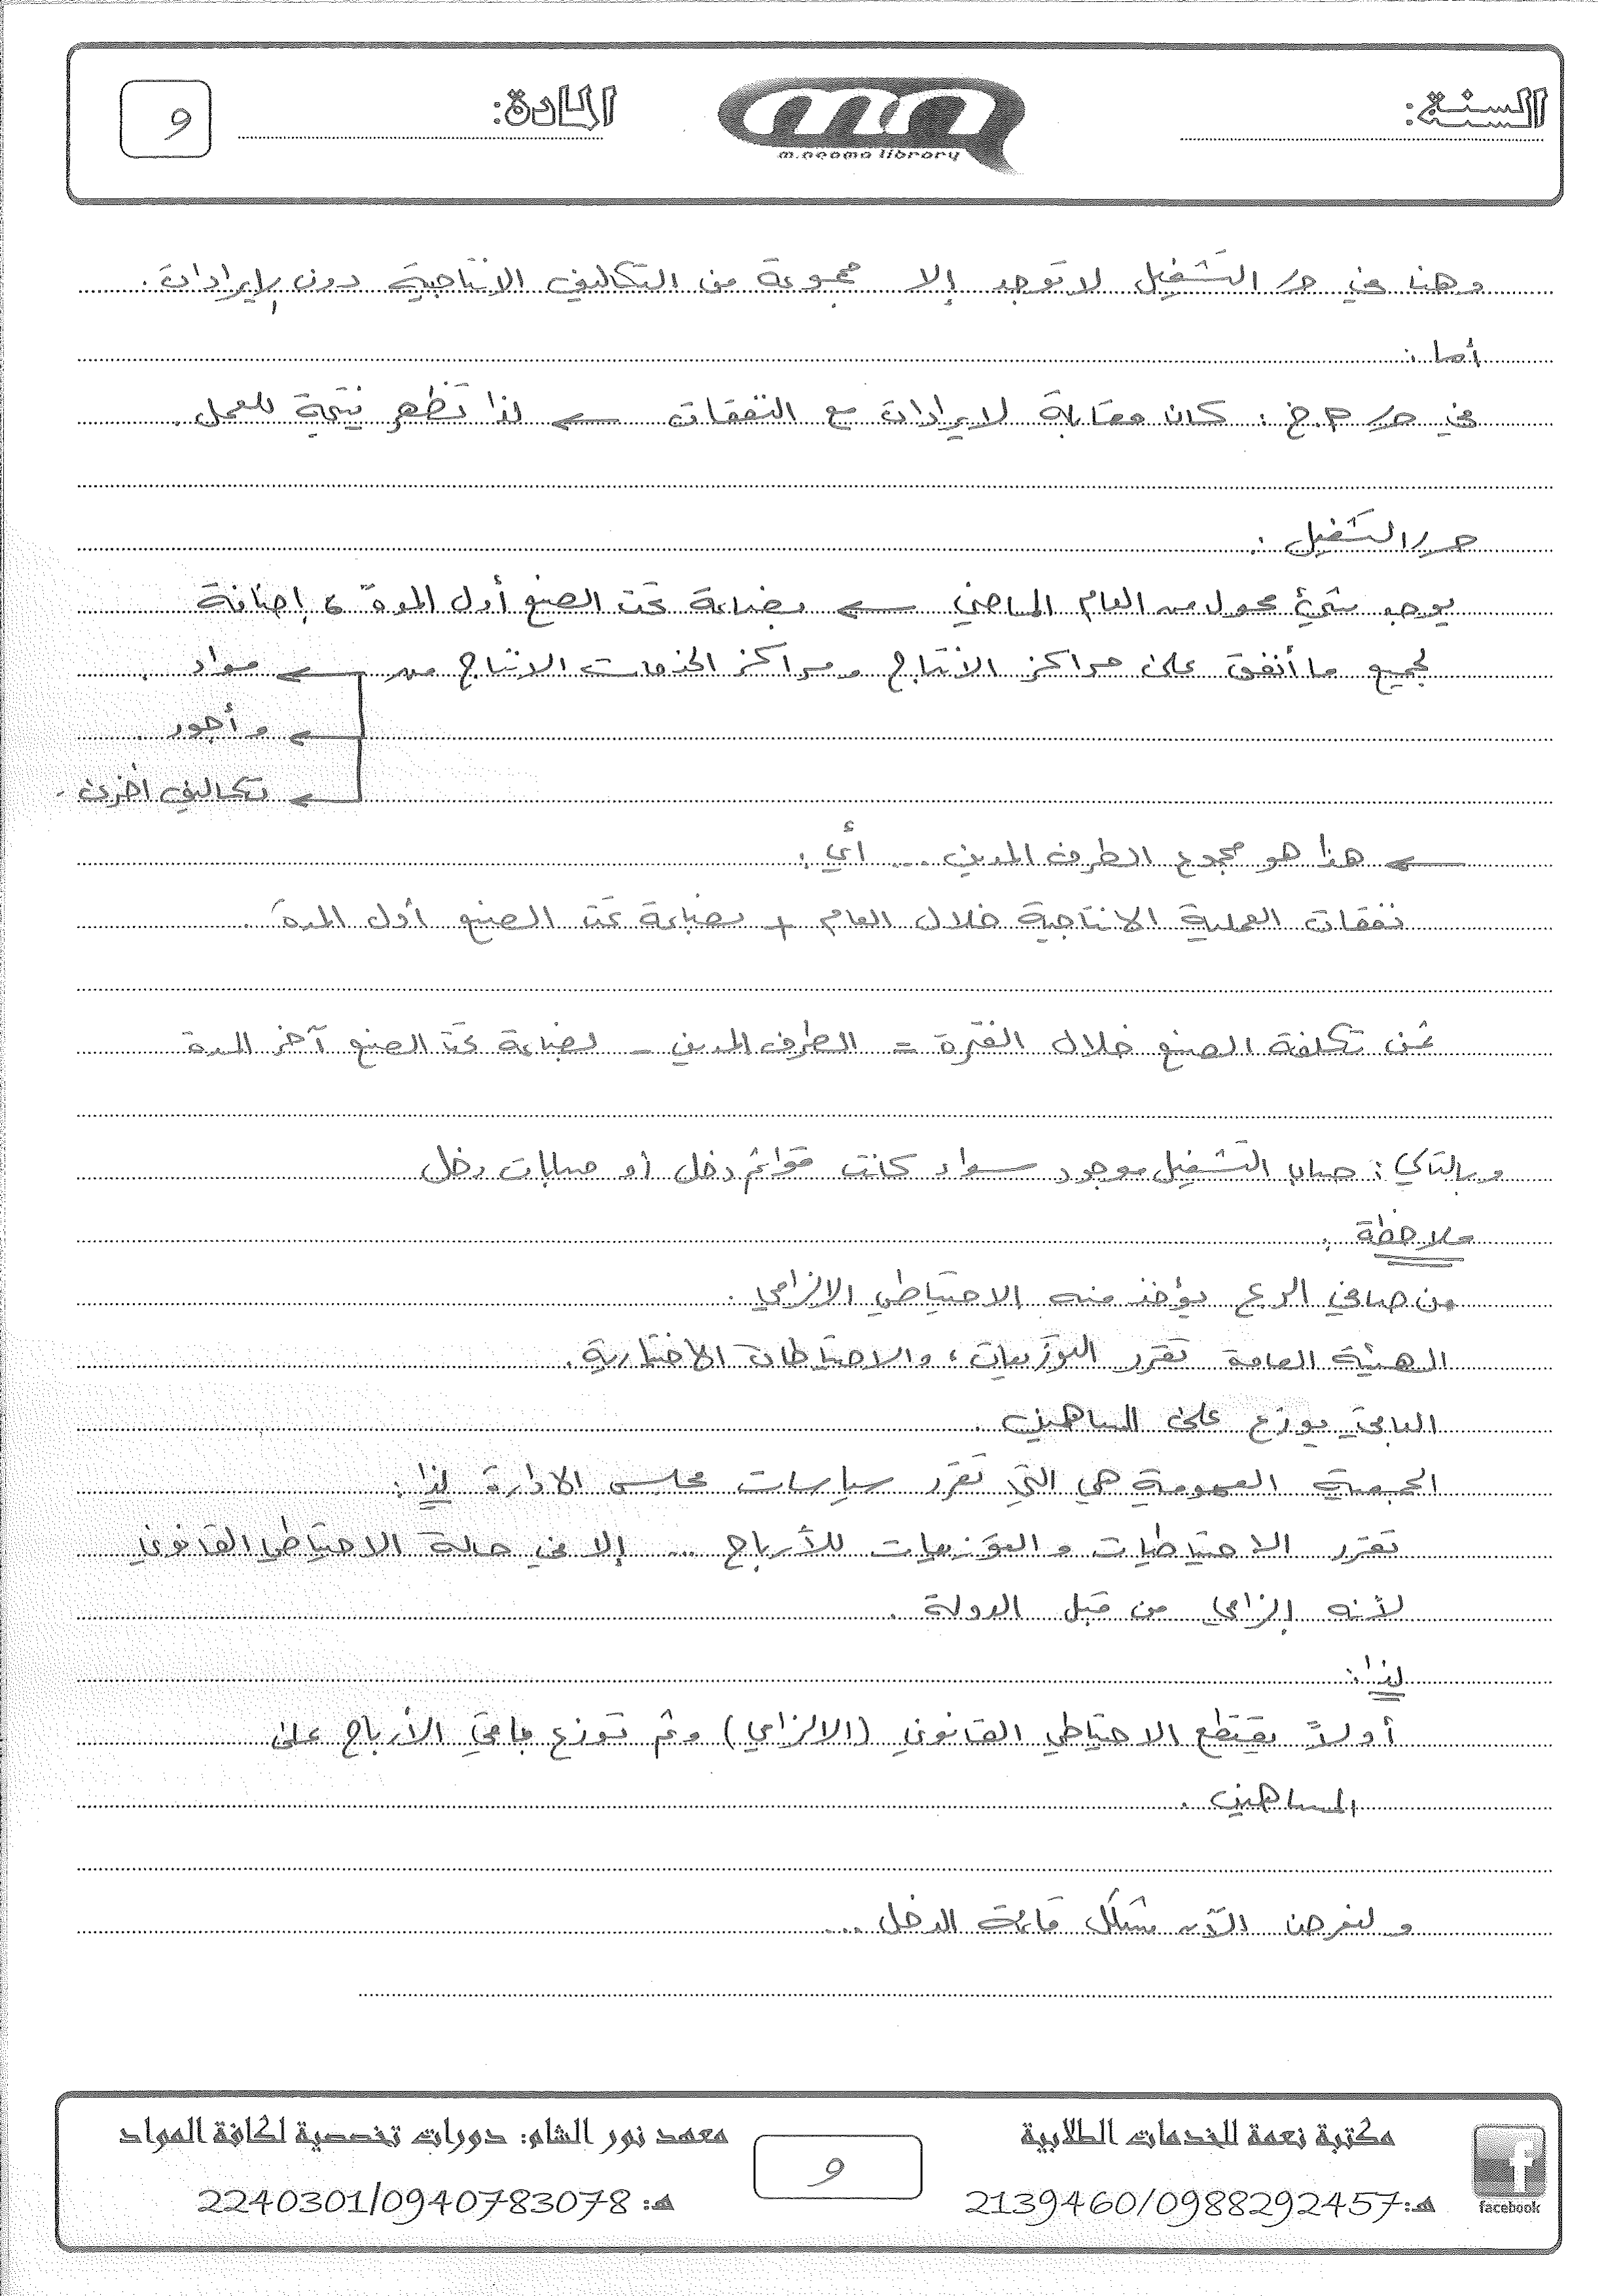 السنة:
m.neama library
المادة:
9
وهنا في حـ/ التشغيل لا توجد إلا مجموعة من التكاليف الانتاجية دون إيرادات.
أما:
في حـ/ أ.خ: كان مقابلة لايرادات مع النفقات ← لذا تظهر نتيجة للعمل.
حـ/التشغيل:
يوجد شيء محول من العام الماضي ← بضاعة تحت الصنع أول المدة، إضافة
لجميع ما أنفق على مراكز الانتاج ومراكز الخدمات الانتاج من ← مواد.
← وأجور.
← تكاليف أخرى.
← هذا هو مجموع الطرف المدين ... أي:
نفقات العملية الانتاجية خلال العام + بضاعة تحت الصنع أول المدة.
ثمن تكلفة الصنع خلال الفترة = الطرف المدين - بضاعة تحت الصنع آخر المدة
وبالتالي: حساب التشغيل موجود سواء كانت قوائم دخل أو حسابات دخل
ملاحظة:
من صافي الربح يؤخذ منه الاحتياطي الالزامي.
الهيئة العامة تقرر التوزيعات، والاحتياطات الاختيارية.
الباقي يوزع على المساهمين.
الجمعية العمومية هي التي تقرر سياسات مجلس الادارة لذا:
تقرر الاحتياطيات والتوزيعات للأرباح ... إلا في حالة الاحتياطي القانوني
لأنه إلزامي من قبل الدولة.
لذا:
أولاً يقتطع الاحتياطي القانوني (الالزامي) وثم توزع باقي الأرباح على
المساهمين.
ولنعرض الآن شكل قائمة الدخل ...
facebook
مكتبة نعمة للخدمات الطلابية
هـ: 2139460/0988292457
9
معهد نور الشام: دورات تخصصية لكافة المواد
هـ: 2240301/0940783078